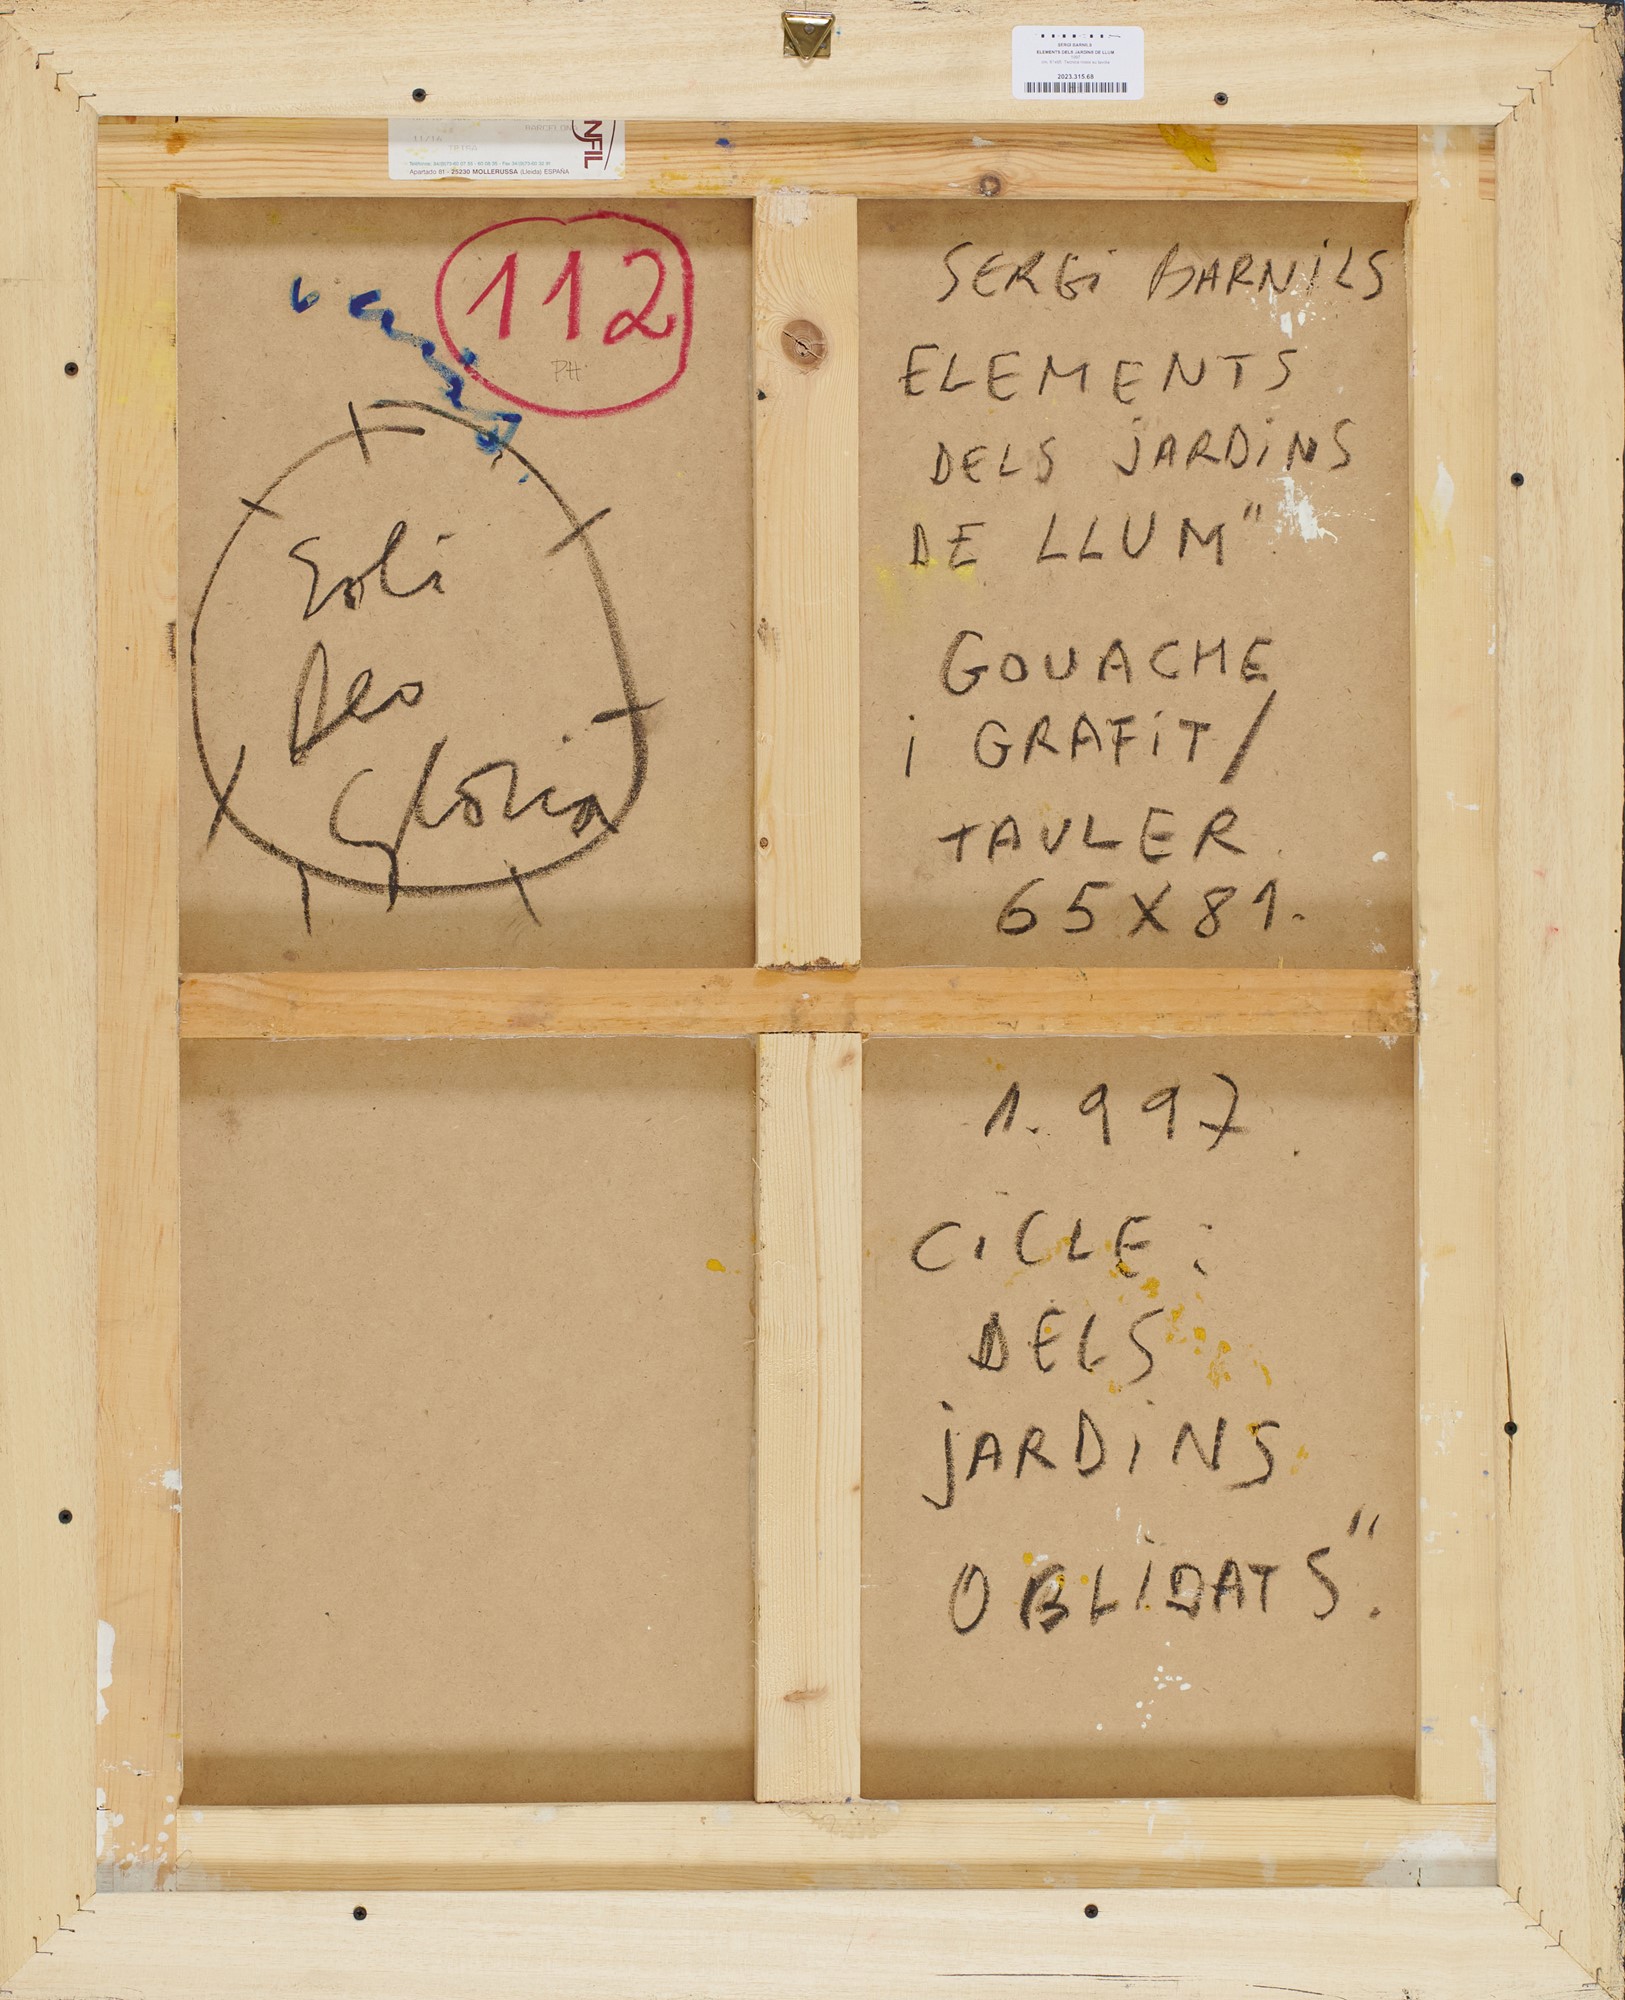 SERGI BARNILS
ELEMENTS DELS JARDINS DE LLUM
2023.315.68
NFIL
Apartado 81 - 25230 MOLLERUSSA (Lleida) ESPAÑA
112
PH
Soli
Deo
Glòria
SERGi BARNiLS
ELEMENTS
DELS jARDiNS
DE LLUM"
GOUACHE
i GRAFiT/
TAULER.
65X81.
1.997.
CiCLE:
DELS
jARDiNS
OBLiDATS".